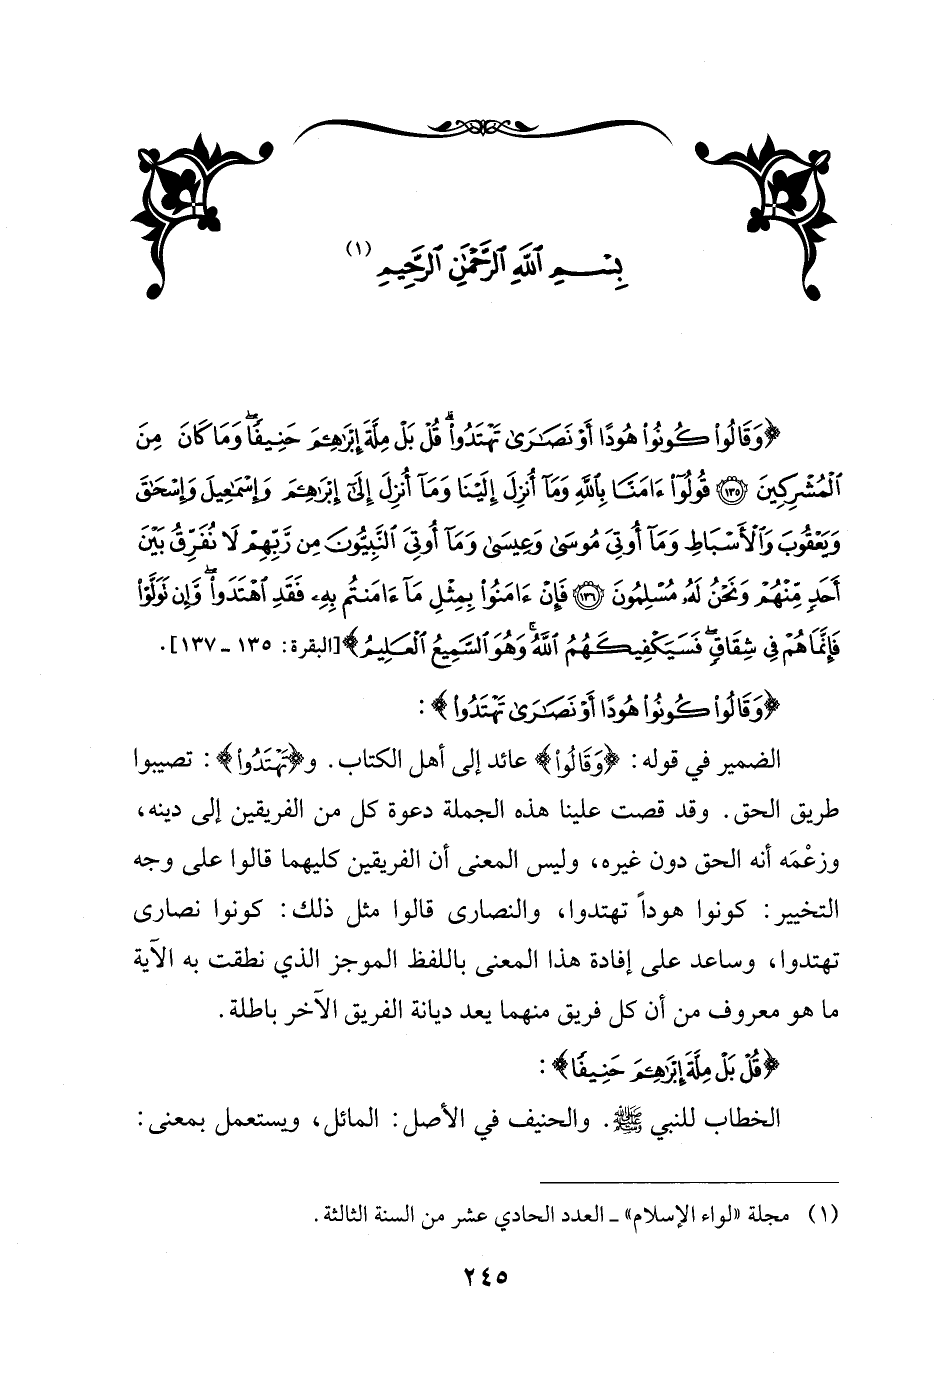 بِسْمِ ٱللَّهِ ٱلرَّحْمَٰنِ ٱلرَّحِيمِ (١)
﴿وَقَالُوا۟ كُونُوا۟ هُودًا أَوْ نَصَٰرَىٰ تَهْتَدُوا۟ۗ قُلْ بَلْ مِلَّةَ إِبْرَٰهِـۧمَ حَنِيفًاۖ وَمَا كَانَ مِنَ
ٱلْمُشْرِكِينَ ١٣٥ قُولُوٓا۟ ءَامَنَّا بِٱللَّهِ وَمَآ أُنزِلَ إِلَيْنَا وَمَآ أُنزِلَ إِلَىٰٓ إِبْرَٰهِـۧمَ وَإِسْمَٰعِيلَ وَإِسْحَٰقَ
وَيَعْقُوبَ وَٱلْأَسْبَاطِ وَمَآ أُوتِىَ مُوسَىٰ وَعِيسَىٰ وَمَآ أُوتِىَ ٱلنَّبِيُّونَ مِن رَّبِّهِمْ لَا نُفَرِّقُ بَيْنَ
أَحَدٍ مِّنْهُمْ وَنَحْنُ لَهُۥ مُسْلِمُونَ ١٣٦ فَإِنْ ءَامَنُوا۟ بِمِثْلِ مَآ ءَامَنتُم بِهِۦ فَقَدِ ٱهْتَدَوا۟ۖ وَّإِن تَوَلَّوْا۟
فَإِنَّمَا هُمْ فِى شِقَاقٍۖ فَسَيَكْفِيكَهُمُ ٱللَّهُۚ وَهُوَ ٱلسَّمِيعُ ٱلْعَلِيمُ﴾ [البقرة: ١٣٥ ـ ١٣٧].
﴿وَقَالُوا۟ كُونُوا۟ هُودًا أَوْ نَصَٰرَىٰ تَهْتَدُوا۟﴾:
الضمير في قوله: ﴿وَقَالُوا۟﴾ عائد إلى أهل الكتاب. و﴿تَهْتَدُوا۟﴾: تصيبوا
طريق الحق. وقد قصت علينا هذه الجملة دعوة كل من الفريقين إلى دينه،
وزعْمَه أنه الحق دون غيره، وليس المعنى أن الفريقين كليهما قالوا على وجه
التخيير: كونوا هوداً تهتدوا، والنصارى قالوا مثل ذلك: كونوا نصارى
تهتدوا، وساعد على إفادة هذا المعنى باللفظ الموجز الذي نطقت به الآية
ما هو معروف من أن كل فريق منهما يعد ديانة الفريق الآخر باطلة.
﴿قُلْ بَلْ مِلَّةَ إِبْرَٰهِـۧمَ حَنِيفًا﴾:
الخطاب للنبي ﷺ. والحنيف في الأصل: المائل، ويستعمل بمعنى:
(١) مجلة «لواء الإسلام» ـ العدد الحادي عشر من السنة الثالثة.
٢٤٥